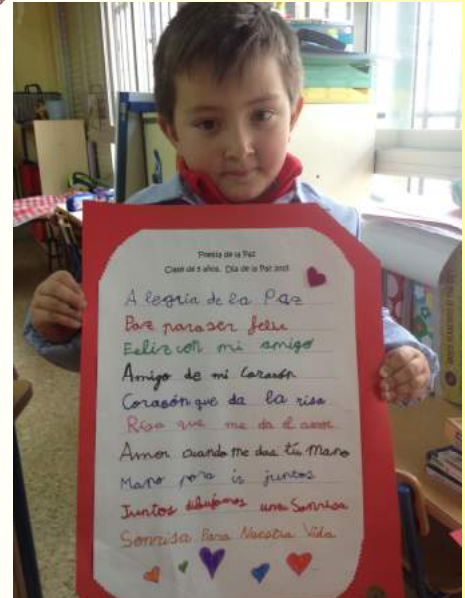 Poesía de la Paz
Clase de 5 años. Día de la Paz 2013
Alegria de la Paz
Paz para ser feliz
Feliz con mi amigo
Amigo de mi Corazón
Corazón que da la risa
Risa que me da el amor
Amor cuando me das tú mano
Mano para ir juntos
Juntos dibujamos una Sonrisa
Sonrisa Para Nuestra Vida